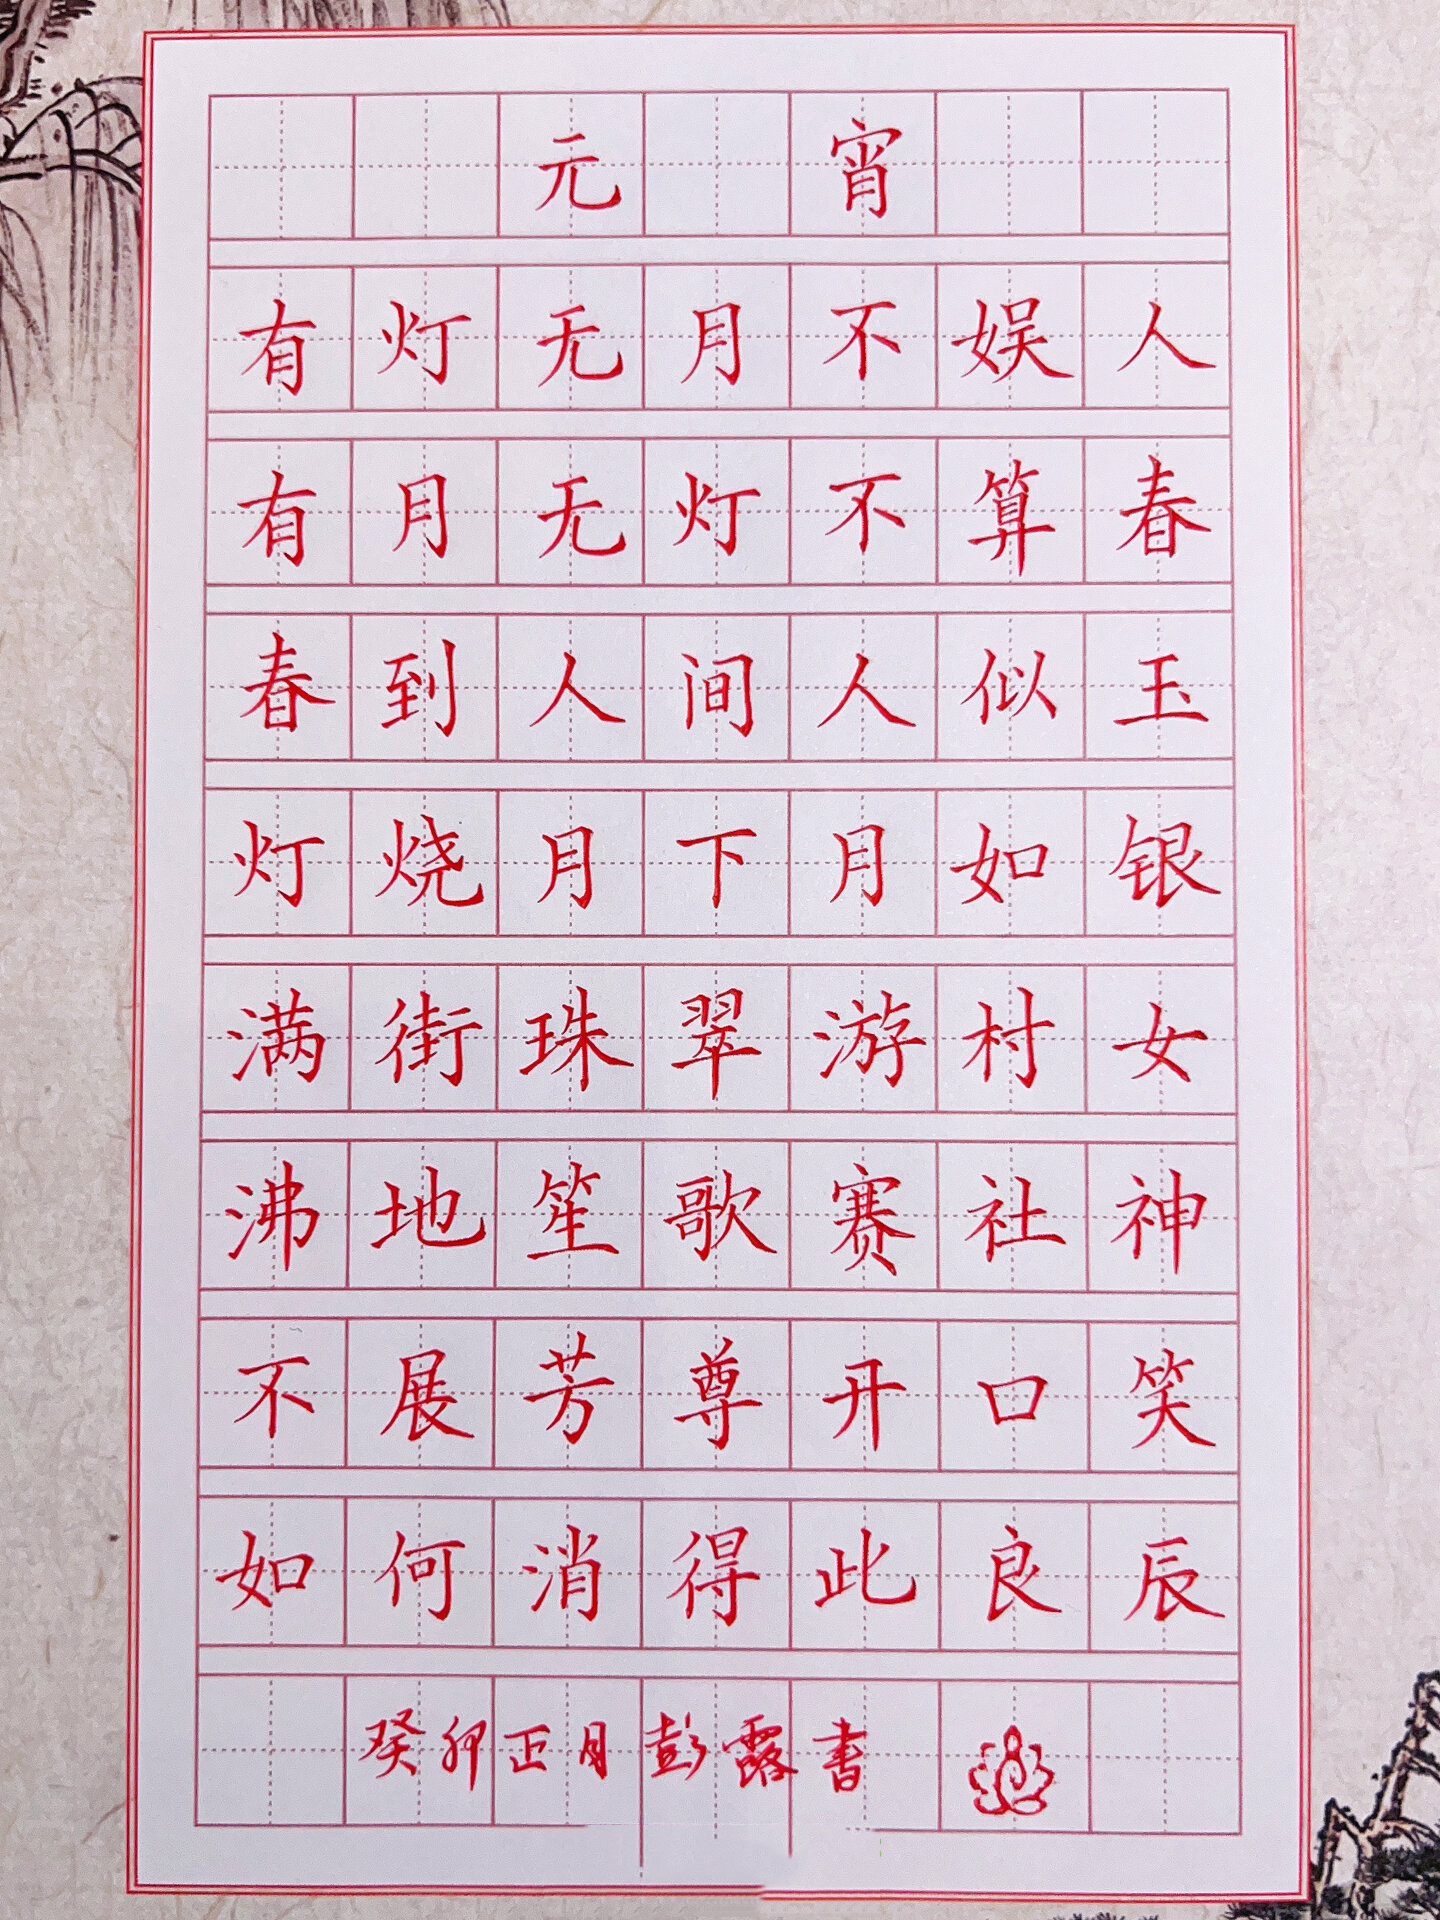 元宵
有灯无月不娱人
有月无灯不算春
春到人间人似玉
灯烧月下月如银
满街珠翠游村女
沸地笙歌赛社神
不展芳尊开口笑
如何消得此良辰
癸卯正月彭露书